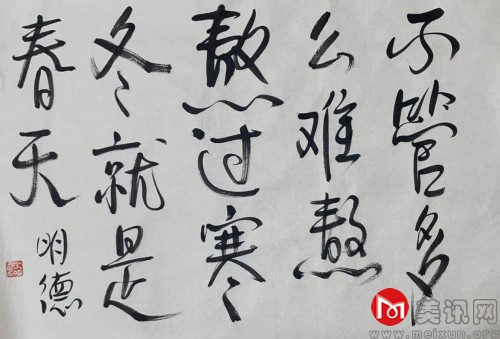 不管多
么难熬
熬过寒
冬就是
春天
明德
美讯网
www.meixun.org